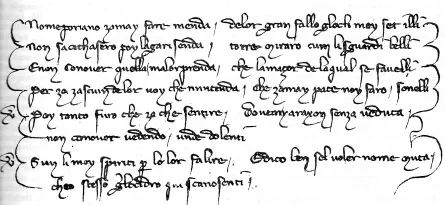 No me poriano zamay farre menda / delor gran fallo glocli mey set illi
Non sacechasero poy lagarisenda / torre miraro cum li sguardi belli
E non conover quella malorprenda / che lamaçor dela qual se favelli
Per zo zascun delor voy che mintenda / che zamay pace noy faro sonelli
Poy tanto furo che zo che sentire / dovean a raxon senza veduta /
non conover vedendo / unde dolenti
Sun li mey spirti p lo lor falire / E dico ben sel voler nome muta /
cheo stesso qui scanosenti .